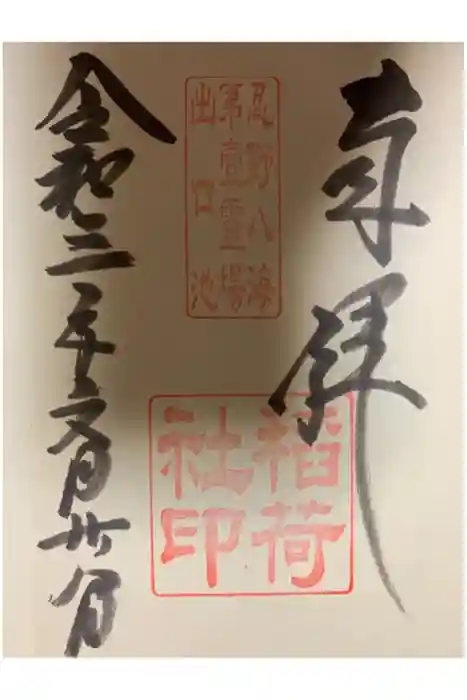 奉拝
忍野八海
第壹霊場
出口池
稲荷
社印
令和三年文月廿六日